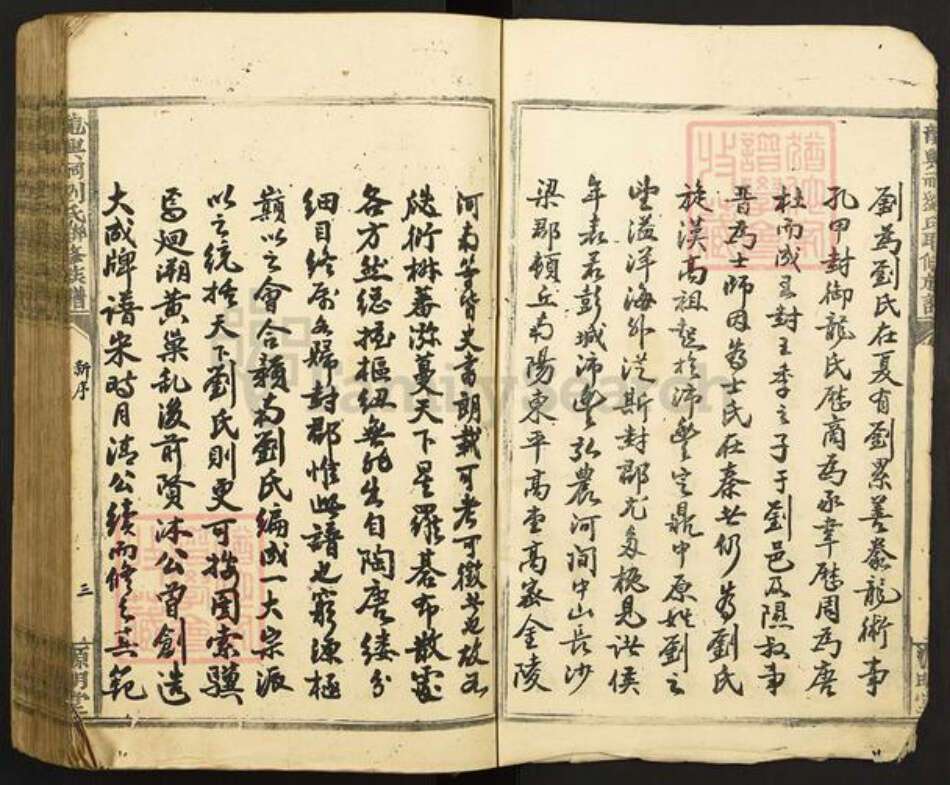 劉為劉氏在夏有劉累善豢龍術事
孔甲封御龍氏歷商為豕韋歷周為唐
杜而成王封王季之子于劉邑及隰叔事
晋為士師因為士氏在秦世仍為劉氏
旋漢高祖起於沛豐定鼎中原姓劉之
望溢洋海外從斯封郡尤多槪見諸侯
年表若彭城沛豐弘農河間中山長沙
梁郡頓丘南陽東平高堂高密金陵
河南等皆史書朗載可考可徵者也故而
瓞衍椒蕃瀰蔓天下星羅碁布散處
各方然總握樞紐無非出自陶唐縷分
細目終屬夫婦封郡惟此譜也窮源極
巔以之會合贛南劉氏編成一大宗派
以之統括天下劉氏則更可按圖索驥
焉廻溯黃巢乱後前賢沐公曾創造
大成牌譜宋時月清公續而修之其範
龍興祠刘氏聯修族譜
新序
三
源明堂
FamilySearch